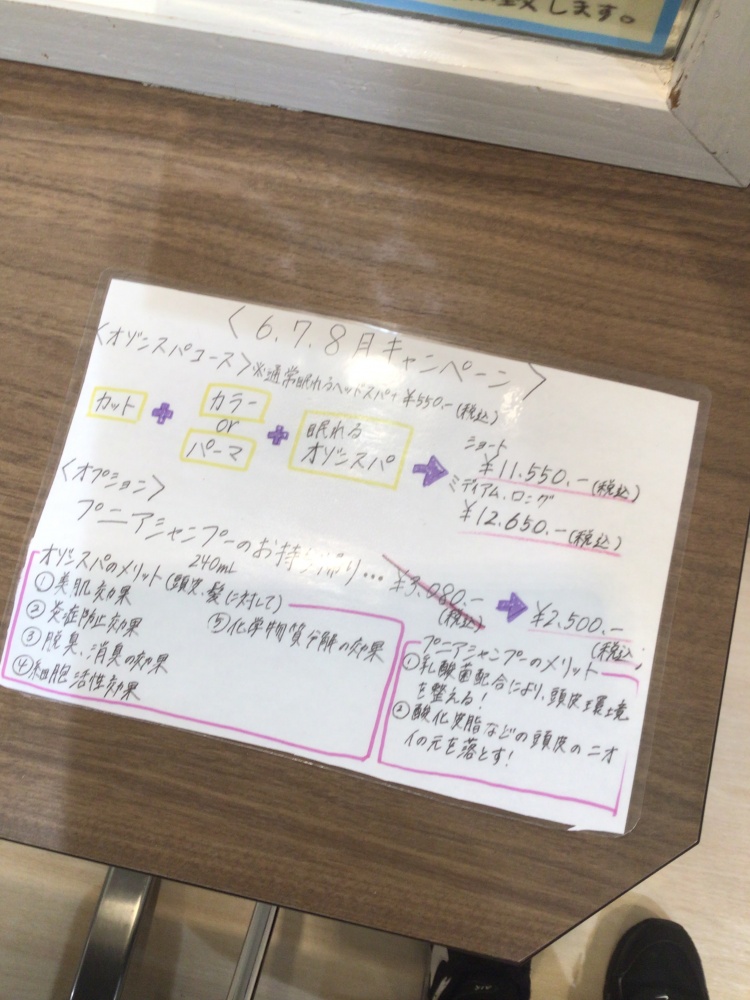 致します。
〈 6.7.8月キャンペーン 〉
〈オゾンスパコース〉※通常眠れるヘッドスパ+¥550.-(税込)
カット + カラー or パーマ + 眠れる オゾンスパ →
ショート
¥11.550.-(税込)
ミディアム、ロング
¥12.650.-(税込)
〈オプション〉
プニアシャンプーのお持ち帰り… ¥3.080.-(税込) → ¥2.500.-(税込)
240mL
オゾンスパのメリット(頭皮、髪に対して)
①美肌効果
②炎症防止効果
③脱臭、消臭の効果
④細胞活性効果
⑤化学物質分解の効果
プニアシャンプーのメリット
①乳酸菌配合により、頭皮環境
を整える!
②酸化皮脂などの頭皮のニオ
イの元を落とす!